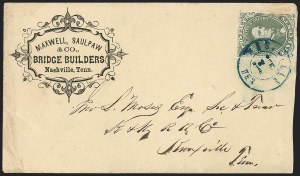 MAXWELL, SAULPAW
& CO.,
BRIDGE BUILDERS
Nashville, Tenn.
Jno. L. Moses Esqr Sec & Treas
K & K R R Co
Knoxville
Tenn.